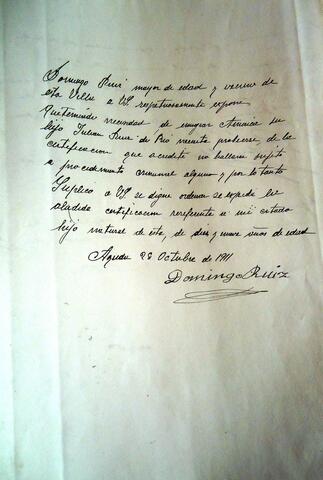 Domingo Ruiz mayor de edad y vecino de
esta Villa a VS. respetuosamente expone
Que teniendo necesidad de emigrar America su
hijo Julian Ruiz de Pio necesita proveerse de la
certificacion que acredite no hallarse sujeto
a procedimiento criminal alguno y por lo tanto
Suplico a VS. se digne ordenar se expida la
aludida certificacion referente a mi citado
hijo natural de esta, de diez y nueve años de edad
Agreda 28 Octubre de 1911
Domingo Ruiz